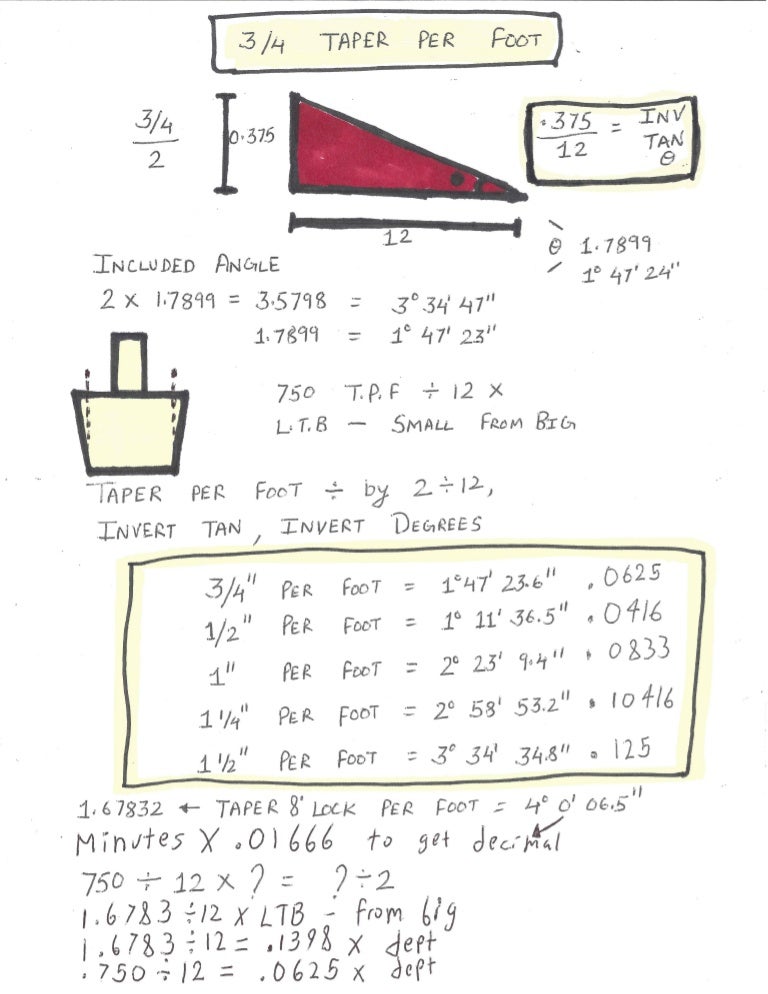 3/4 TAPER PER FOOT
3/4
2
0.375
.375
12
= INV
TAN
θ
12
θ 1.7899
1° 47' 24"
INCLUDED ANGLE
2 × 1.7899 = 3.5798 = 3° 34' 47"
1.7899 = 1° 47' 23"
750 T.P.F ÷ 12 ×
L.T.B – SMALL FROM BIG
TAPER PER FOOT ÷ by 2 ÷ 12,
INVERT TAN, INVERT DEGREES
3/4" PER FOOT = 1° 47' 23.6" .0625
1/2" PER FOOT = 1° 11' 36.5" .0416
1" PER FOOT = 2° 23' 9.4" .0833
1 1/4" PER FOOT = 2° 58' 53.2" .10416
1 1/2" PER FOOT = 3° 34' 34.8" .125
1.67832 ← TAPER 8' LOCK PER FOOT = 4° 0' 06.5"
Minutes X .01666 to get decimal
750 ÷ 12 × ? = ? ÷ 2
1.6783 ÷ 12 X LTB - from big
1.6783 ÷ 12 = .1398 x dept
.750 ÷ 12 = .0625 x dept